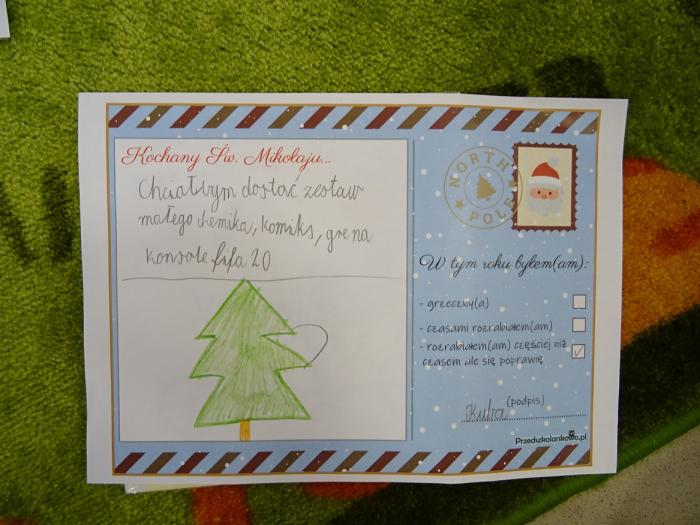 Kochany Św. Mikołaju...
Chciałbym dostać zestaw
małego chemika, komiks, grę na
konsole fifa 20
NORTH POLE
W tym roku byłem(am):
- grzeczny(a)
- czasami rozrabiałem(am)
- rozrabiałem(am) częściej niż
czasem ale się poprawię
(podpis)
Kuba
Przedszkolankowo.pl